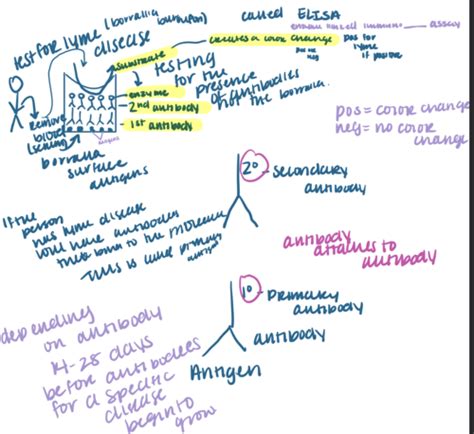 test for lyme (borrallia
disease
called ELISA
assay
substrate
creates a color change
pos for
lyme
if positive
testing
for the
presence
of antibodies
from the borralia
enzyme
2nd antibody
1st antibody
Remove
blood
borralia
surface
antigens
pos = color change
neg = no color
change
2°
- secondary
antibody
If the
person
has lyme disease
will have antibodies
to the
This is
antibody
attaches to
antibody
1°
- primary
antibody
antibody
Antigen
depending
on antibody
14-28 days
before antibodies
for a specific
disease
begin to
grow